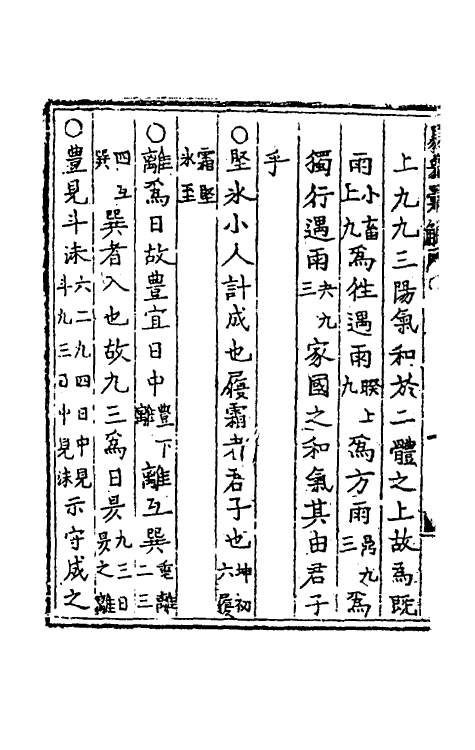 上九九三陽氣和於二體之上故爲既
雨小畜上九爲徃遇雨睽上九爲方雨鼎九三爲
獨行遇雨夬九三家國之和氣其由君子
乎
○堅氷小人計成也履霜者君子也坤初六履
霜堅氷至
○離爲日故豊宜日中豊下離離互巽重離二三
四互巽巽者入也故九三爲日昃九三日昃之離
○豊見斗沬六二九四日中見斗九三日中見沬示守成之